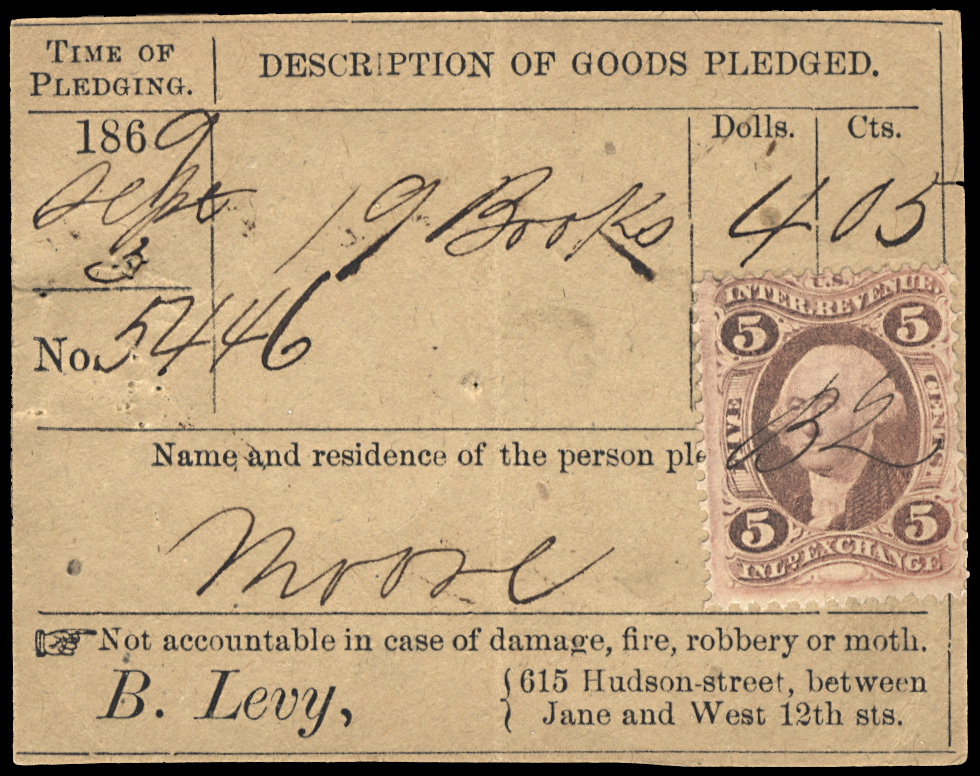 TIME OF PLEDGING.
DESCRIPTION OF GOODS PLEDGED.
Dolls. Cts.
1869
Sept
3
19 Books 4 05
No. 5446
U.S.
INTER. REVENUE.
5 5
FIVE CENTS.
5 5
INL. EXCHANGE
Name and residence of the person ple
Moore
Not accountable in case of damage, fire, robbery or moth.
B. Levy,
615 Hudson-street, between
Jane and West 12th sts.